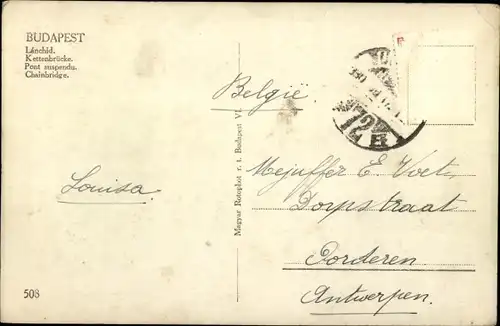 BUDAPEST
Lánchid.
Kettenbrücke.
Pont suspendu.
Chainbridge.
België.
Louisa.
Magyar Rotophot r. t. Budapest VI.
Mejuffer E. Voet.
Dorpstraat
Oorderen
Antwerpen.
72
B
508